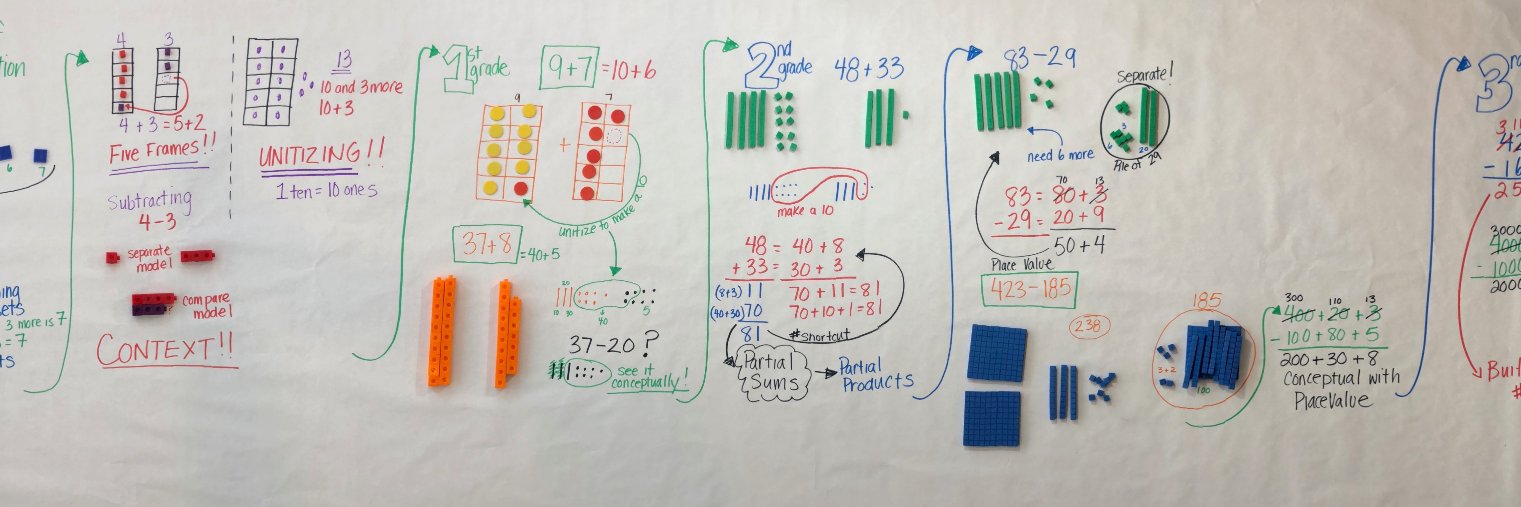 tion
6
7
ning
sets
3 more is 7
= 7
ts
4
3
4 + 3 = 5+2
FIVE FRAMES!!
Subtracting
4-3
separate
model
compare
model
?
CONTEXT!!
13
10 and 3 more
10+3
UNITIZING!!
1 ten = 10 ones
1st
grade
9+7 = 10+6
9
7
+
unitize to make a 10
37+8 = 40+5
20
10 30
40
5
37-20?
see it
conceptually!
2nd
grade
48+33
make a 10
48 = 40 + 8
+ 33 = 30 + 3
(8+3) 11
70 + 11 = 81
(40+30) 70
70+10+1=81
81
#shortcut
Partial
Sums
Partial
Products
83-29
Separate!
need 6 more
3
6
20
Pile of 29
70 13
83 = 80 + 3
- 29 = 20 + 9
50 + 4
Place Value
423-185
238
185
3+2
100
300 110 13
400 + 20 + 3
- 100 + 80 + 5
200 + 30 + 8
Conceptual with
Place Value
3rd
3 11
42
- 16
25
3000
4000
- 1000
2000
Buil
#